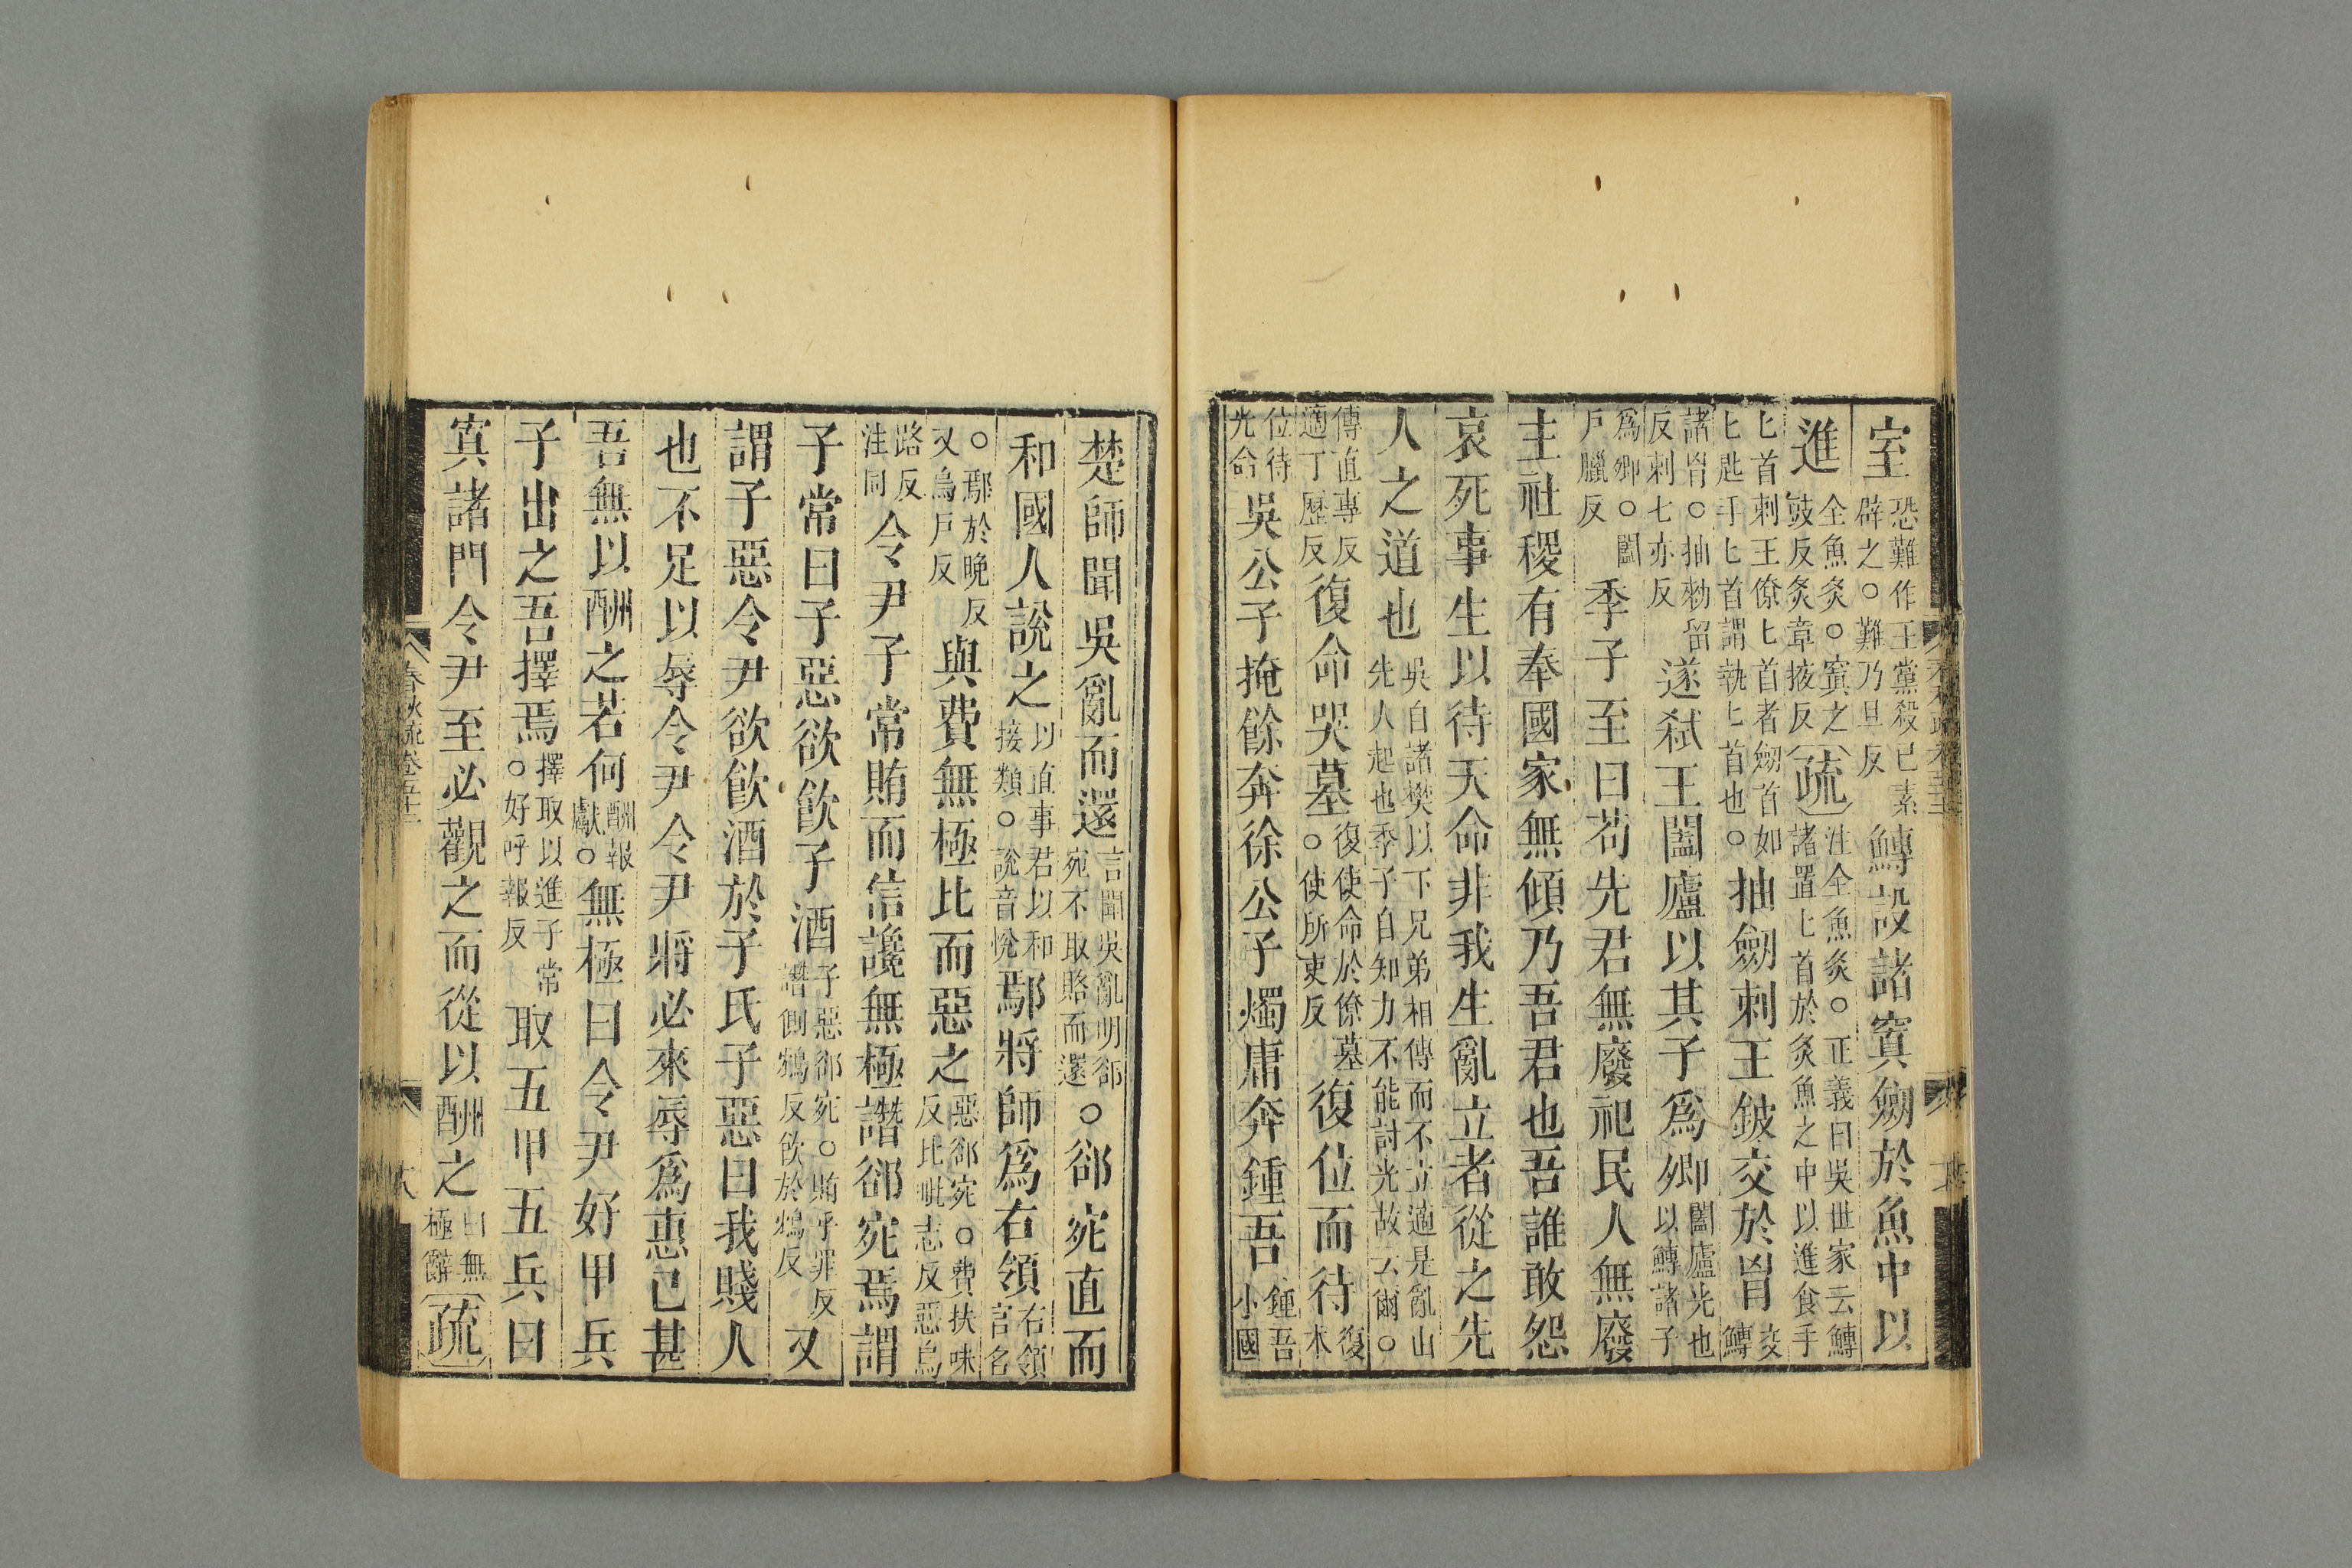 室恐難作王黨殺已素辟之○難乃旦反鱄設諸寘劒於魚中以
進全魚炙○寘之豉反炙章掖反疏注全魚炙○正義曰吳世家云鱄諸置匕首於炙魚之中以進食手
匕首刺王僚匕首者劒首如匕匙手匕首謂執匕首也○抽劒刺王鈹交於胷交鱄
諸胷○抽勑留反刺七亦反遂弑王闔廬以其子爲卿闔廬光也以鱄諸子
爲卿○闔戶臘反季子至曰苟先君無廢祀民人無廢
主社稷有奉國家無傾乃吾君也吾誰敢怨
哀死事生以待天命非我生亂立者從之先
人之道也吳自諸樊以下兄弟相傳而不立適是亂由先人起也季子自知力不能討光故云爾○
傳直專反適丁歷反復命哭墓復使命於僚墓○使所吏反復位而待復本
位待光命吳公子掩餘奔徐公子燭庸奔鍾吾鍾吾小國
楚師聞吳亂而還言聞吳亂明郤宛不取賂而還○郤宛直而
和國人說之以直事君以和接類○說音悅鄢將師爲右領右領官名
○鄢於晚反又烏戶反與費無極比而惡之惡郤宛○費扶味反比毗志反惡烏
路反注同令尹子常賄而信讒無極譖郤宛焉謂
子常曰子惡欲飮子酒子惡郤宛○賄呼罪反譖側鴆反飮於鴆反又
謂子惡令尹欲飮酒於子氏子惡曰我賤人
也不足以辱令尹令尹將必來辱爲惠已甚
吾無以酬之若何酬報獻○無極曰令尹好甲兵
子出之吾擇焉擇取以進子常○好呼報反取五甲五兵曰
寘諸門令尹至必觀之而從以酬之曰無極辭疏
春秋疏卷五十二